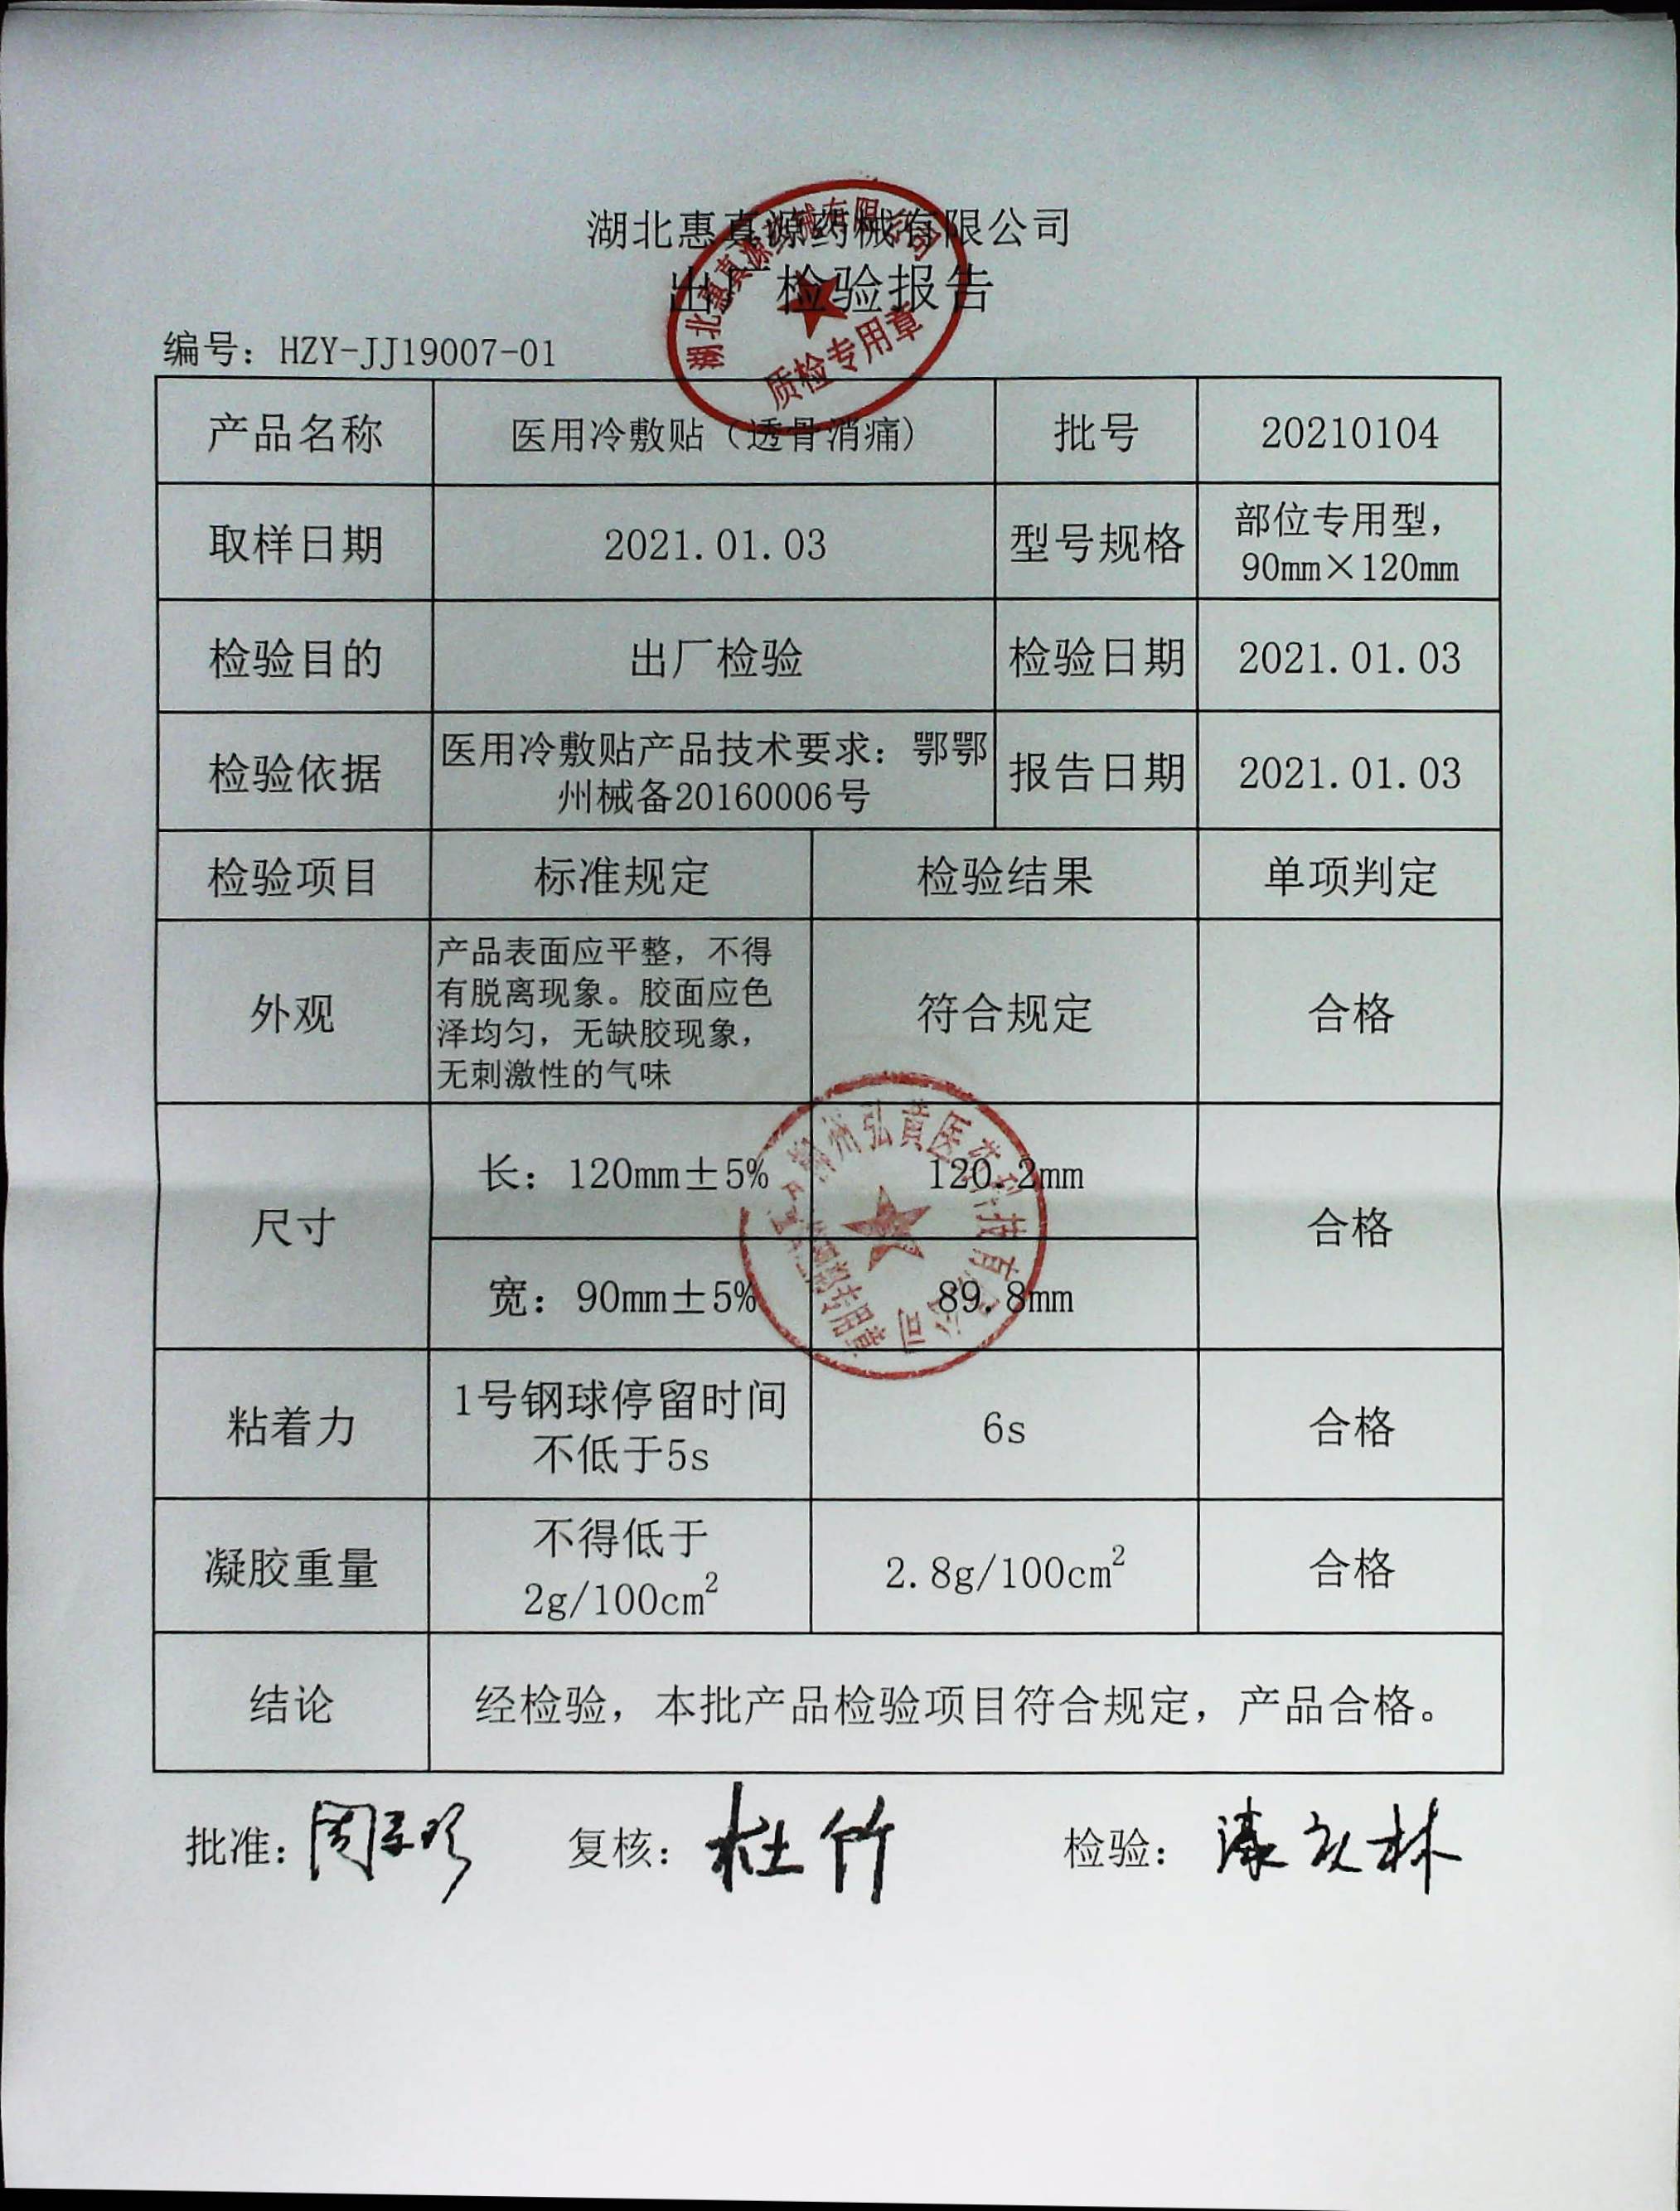 湖北惠真源药械有限公司
出厂检验报告
编号：HZY-JJ19007-01
湖北惠真源药械有限公司
质检专用章
产品名称 医用冷敷贴（透骨消痛） 批号 20210104
取样日期 2021.01.03 型号规格 部位专用型，
90mm×120mm
检验目的 出厂检验 检验日期 2021.01.03
检验依据 医用冷敷贴产品技术要求：鄂鄂
州械备20160006号 报告日期 2021.01.03
检验项目 标准规定 检验结果 单项判定
外观 产品表面应平整，不得
有脱离现象。胶面应色
泽均匀，无缺胶现象，
无刺激性的气味 符合规定 合格
尺寸 长：120mm±5% 120.2mm 合格
宽：90mm±5% 89.8mm
州弘黄医药科技有限公司
专用章
粘着力 1号钢球停留时间
不低于5s 6s 合格
凝胶重量 不得低于
2g/100cm² 2.8g/100cm² 合格
结论 经检验，本批产品检验项目符合规定，产品合格。
批准： 复核：杜竹 检验：